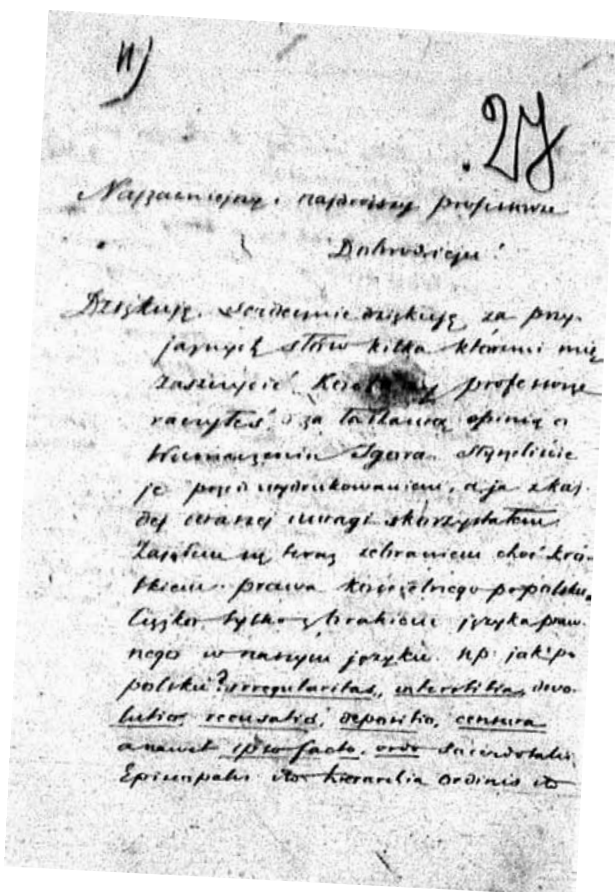 11)
27
Najzacniejszy i najdroższy profesorze
Dobrodzieju!
Dziękuję, serdecznie dziękuję za przy-
jaznych słów kilka któremi mię
zaszczycić Kochany profesorze
raczyłeś i za łaskawą opinią o
Igora
je przed wydrukowaniem, a ja z każ-
dej uwagi skorzystałem
Zająłem się teraz zebraniem choć krót-
kiem prawa kościelnego po polsku.
Ciężko tylko z brakiem języka praw-
nego w naszym języku. np. jak po
polsku? irregularitas, interstitia, devo-
lutio, recusatio, depositio, censura
a nawet ipso facto, ordo sacerdotalis
Episcopalis hierarchia ordinis